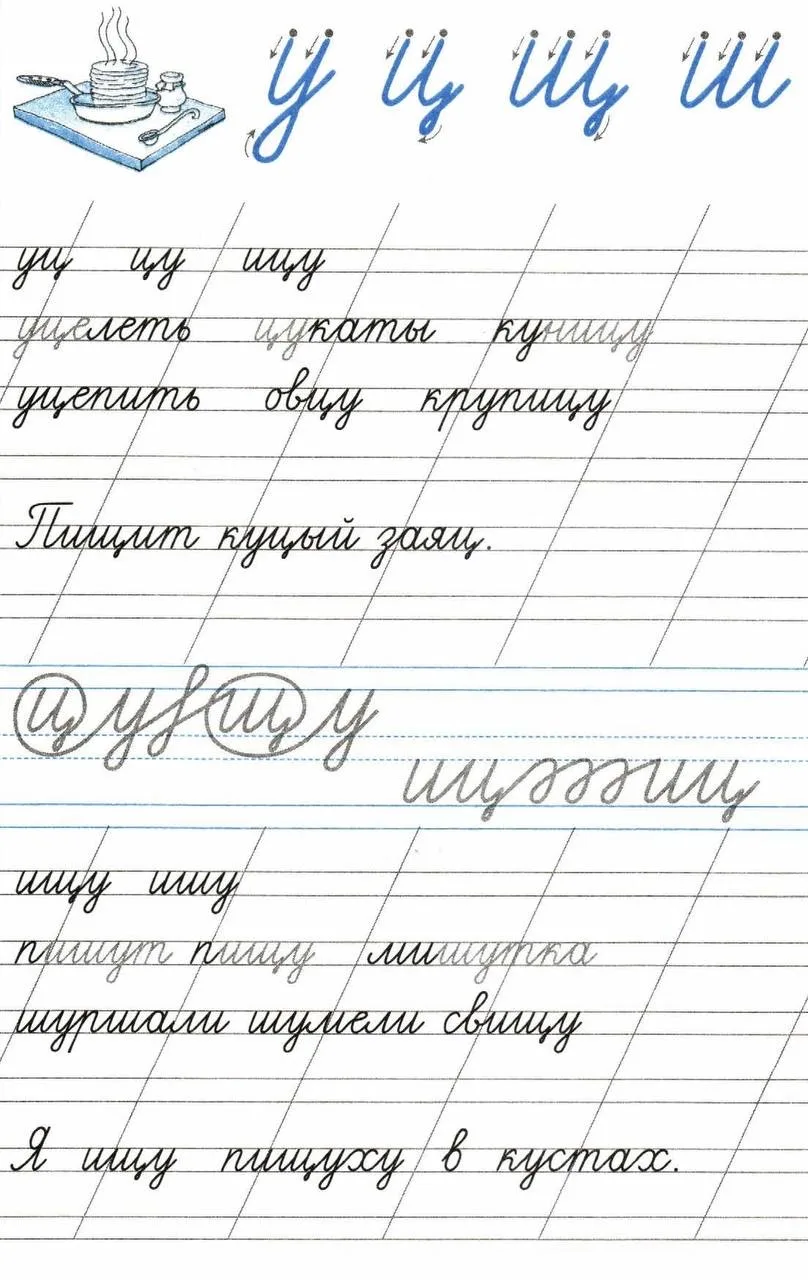 у ц щ ш
уц цу ицу
уцелеть цукаты куницу
уцепить овцу крупицу
Пищит куцый заяц.
цу щу
ищу ишу
пишут пищу мишутка
шуршали шумели свищу
Я ищу пищуху в кустах.